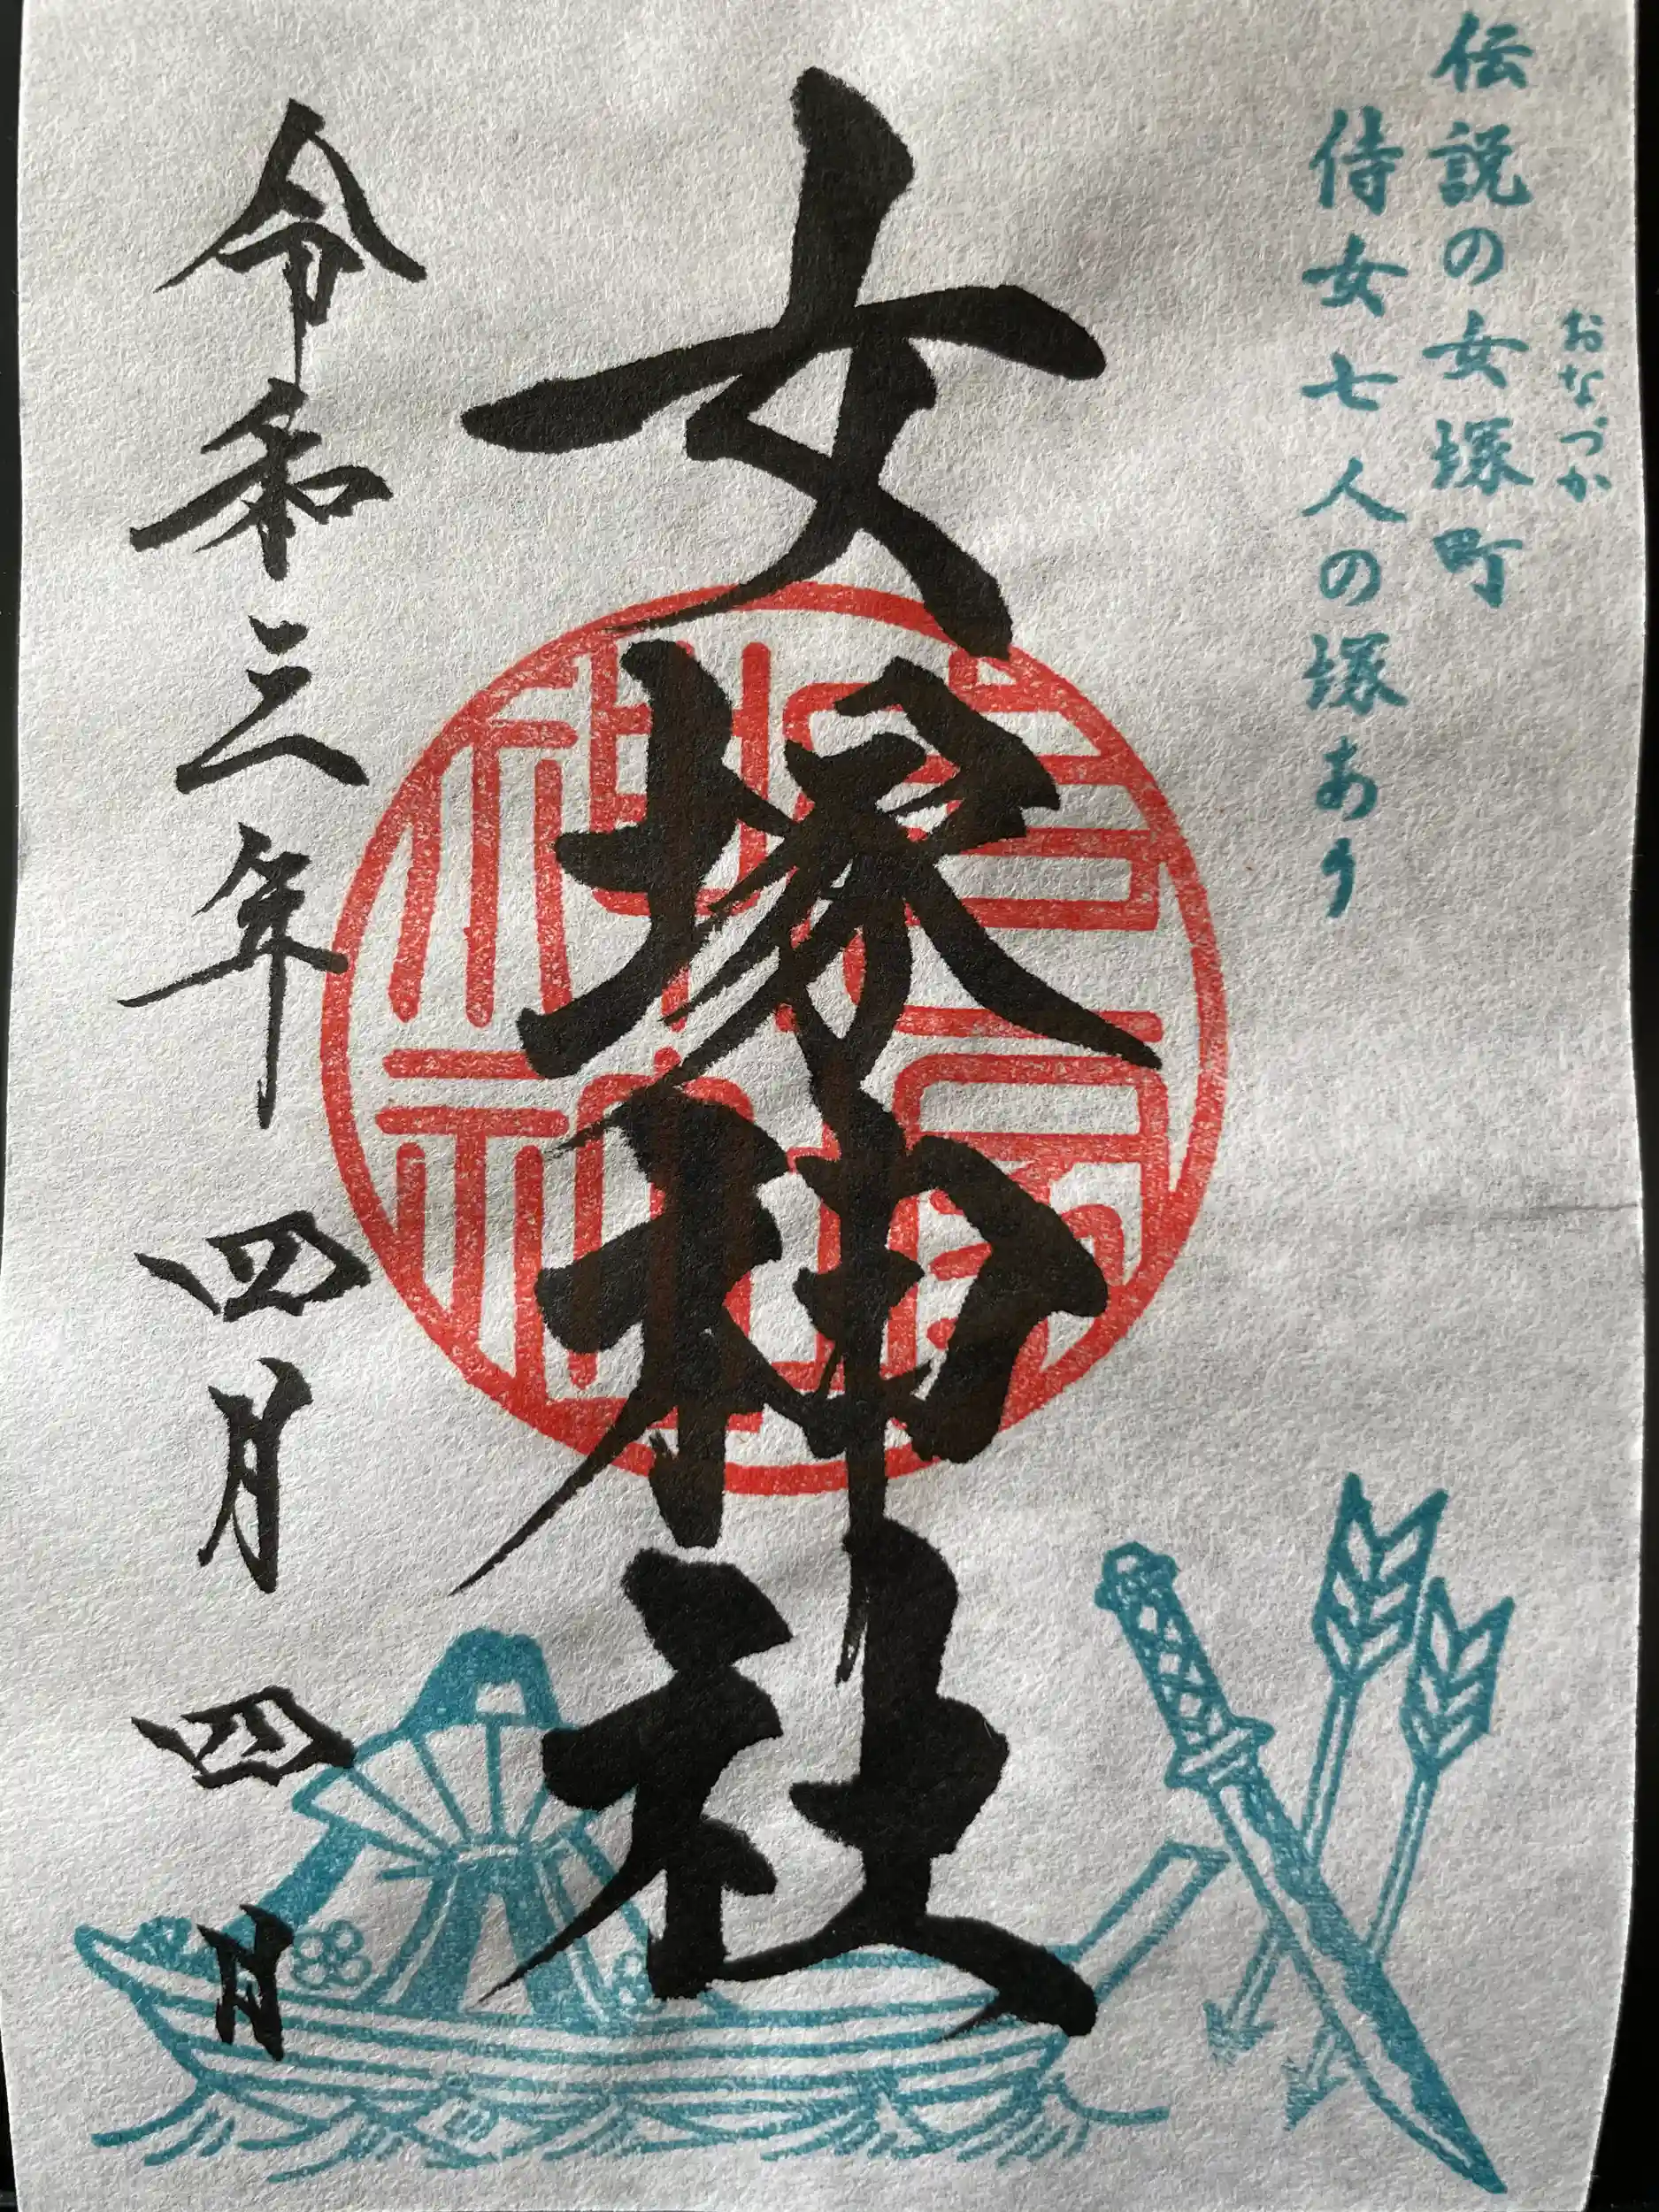 おなづか
伝説の女塚町
侍女七人の塚あり
女塚神社
令和三年 四月 四日